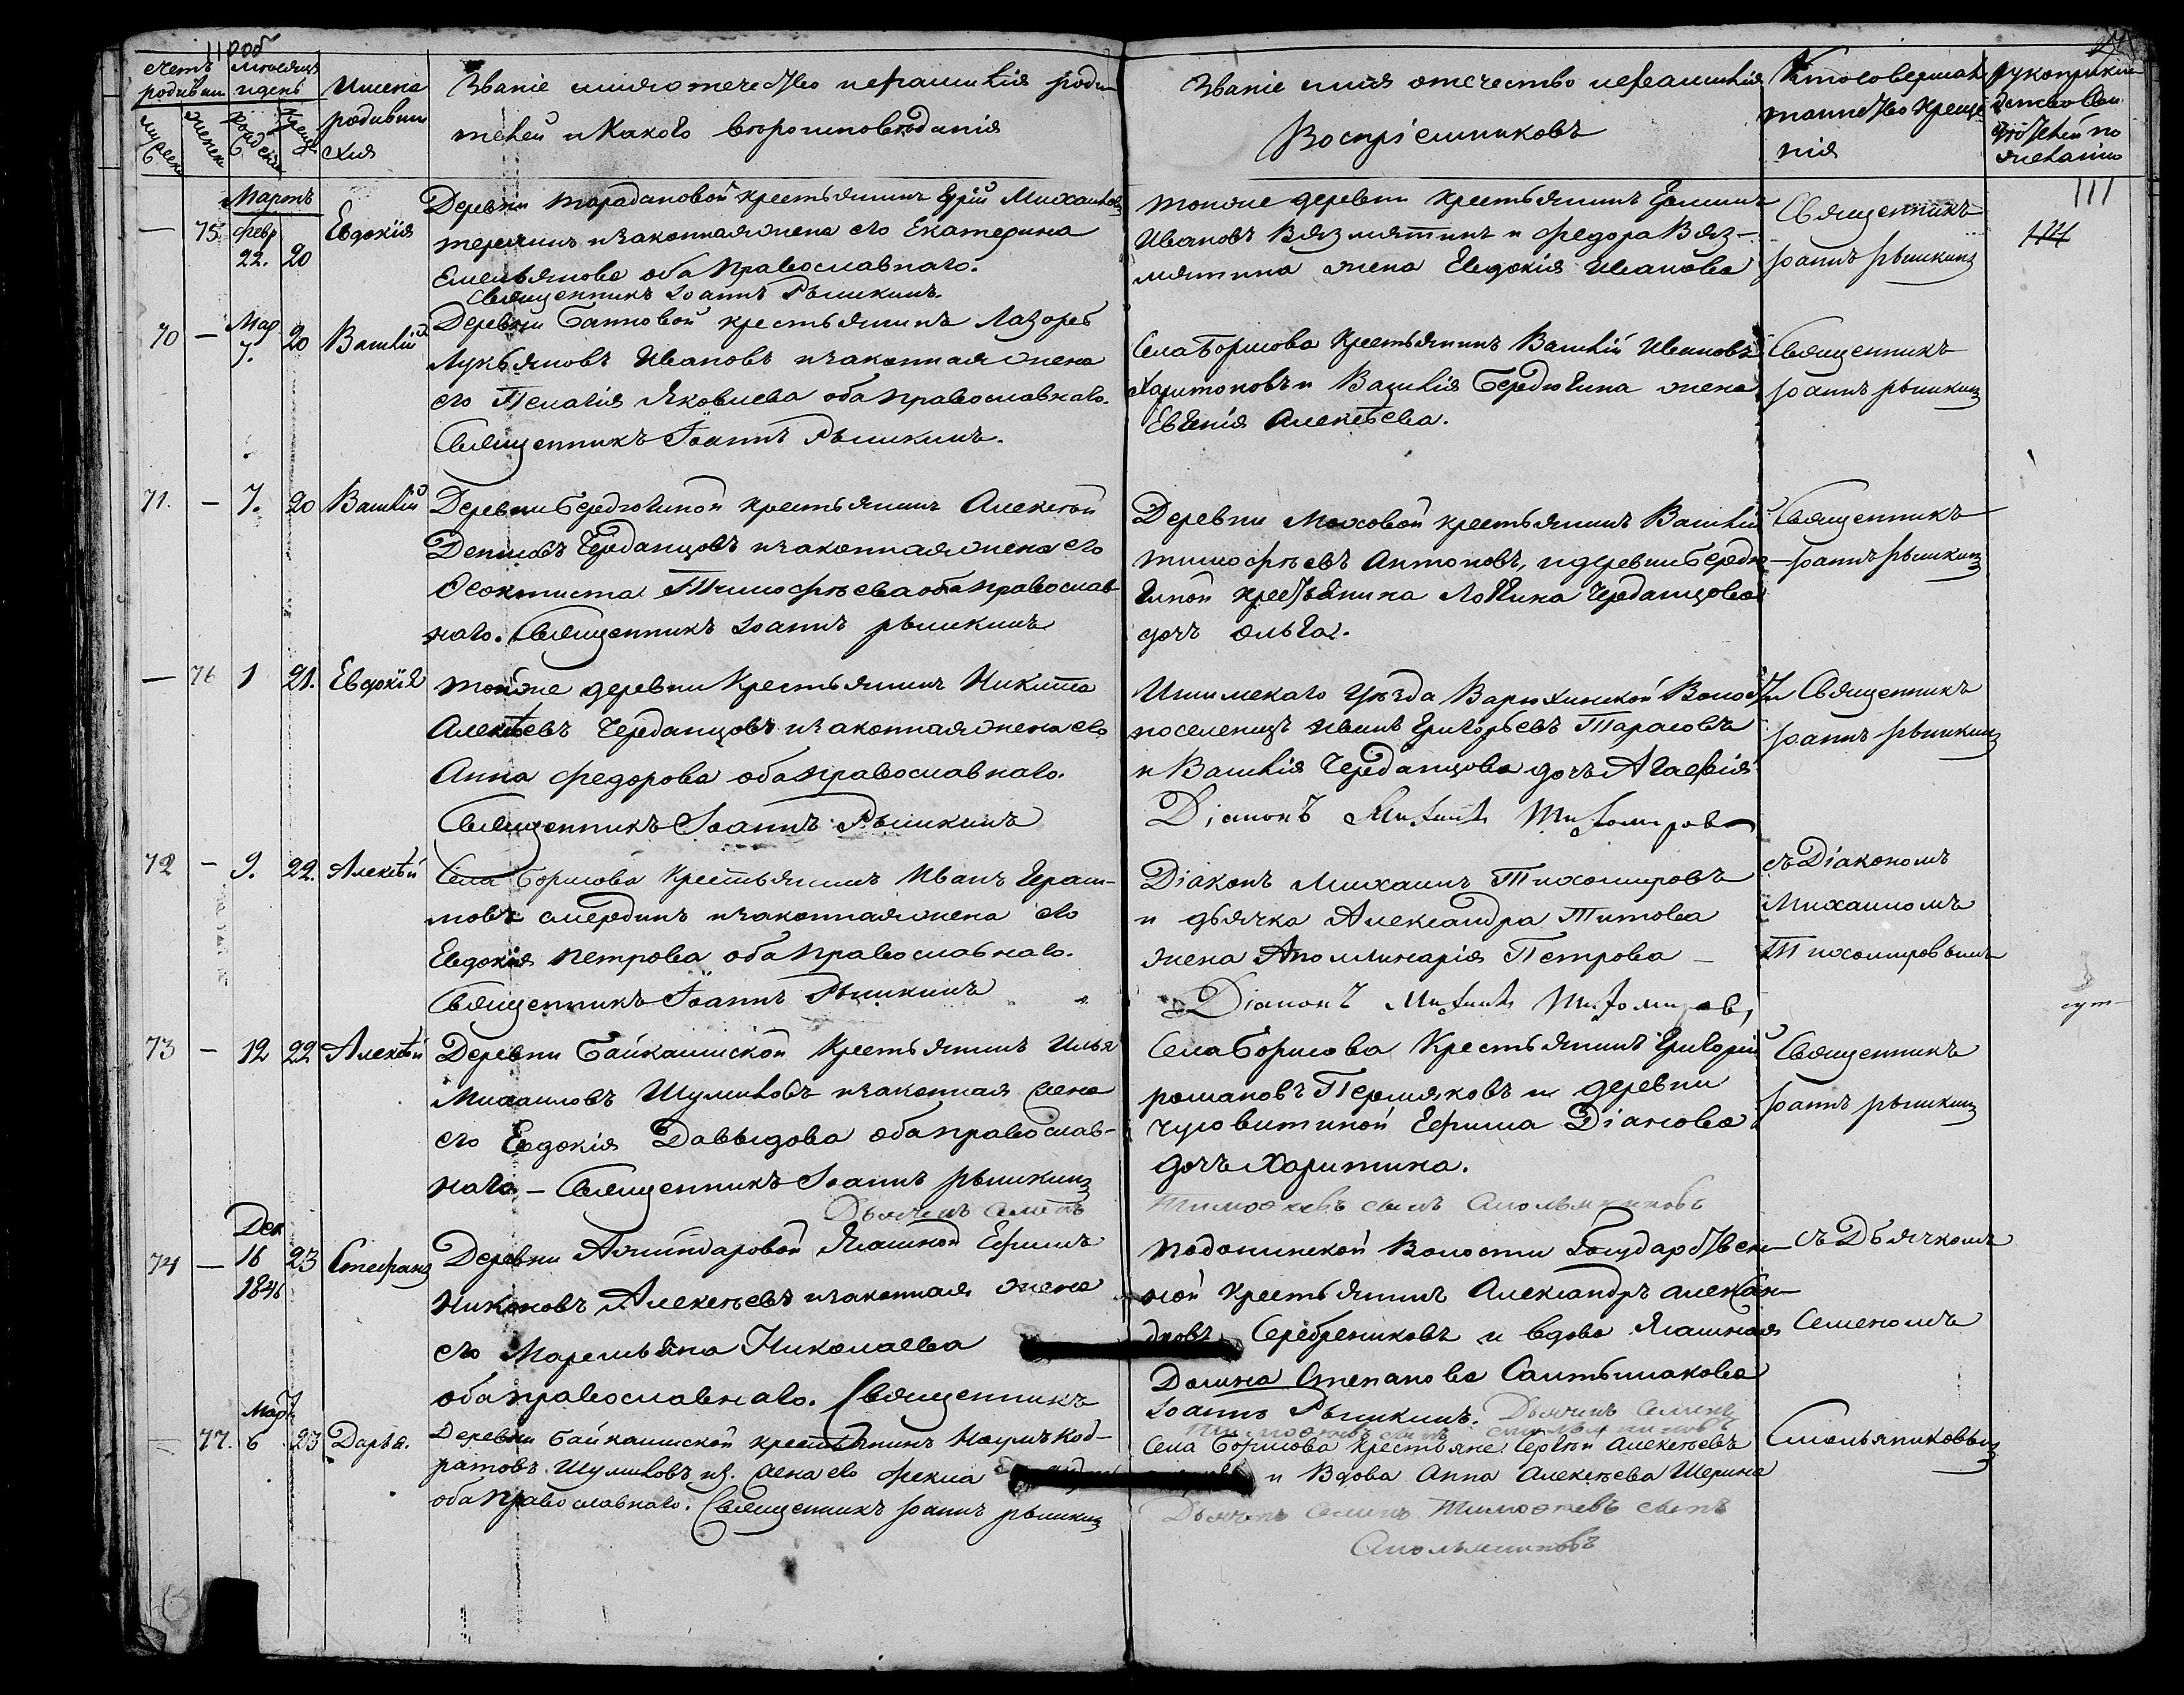 110 об
Счетъ родивши
Мѣсяцъ и день
Имена родивши хся
Званіе имя отчество и фамилія роди-
телей и какого вѣроисповѣданія
Званіе имя отчество и фамилія
Воспріемниковъ
Кто совершалъ
таинство креще
нія
111
Мартъ
— 75 Февр 22. 20 Евдокія
Деревни Тарадановой крестьянинъ Михаиловъ
и законная жена его Екатерина
Емельянова оба православнаго.
Священникъ Іоаннъ Рышкинъ.
тойже деревни крестьянинъ
Ивановъ Вязмятинъ и Федора Вяз-
мятина жена Евдокія Иванова
Священникъ
Іоаннъ Рышкинъ
70 — Мар 7. 20 Василій
Деревни Банновой крестьянинъ Лазорь
Лукьяновъ Ивановъ и законная жена
его Пелагія Яковлева оба православнаго.
Священникъ Іоаннъ Рышкинъ.
Села Борисова крестьянинъ Василій Ивановъ
Харитоновъ и Василія Бердюгина жена
Евгенія Алексѣева.
Священникъ
Іоаннъ Рышкинъ
71. — 7. 20 Василій
Деревни Бердюгиной крестьянинъ Алексѣй
Денисовъ Черданцовъ и законная жена его
Феоктиста Тимофѣева оба православ
наго. Священникъ Іоаннъ Рышкинъ
Деревни Моховой крестьянинъ Василій
Тимофѣевъ Антоновъ, и деревни Бердю-
гиной крестьянина Логина Черданцова
дочь Ольга.
Священникъ
Іоаннъ Рышкинъ
— 76 1 21. Евдокія
тойже деревни крестьянинъ Никита
Алексѣевъ Черданцовъ и законная жена его
Анна Федорова оба православнаго.
Священникъ Іоаннъ Рышкинъ
Ишимскаго уѣзда Волости
поселенецъ Иванъ Григорьевъ Тарасовъ
и Василія Черданцова дочь Агафія
Діаконъ Михаилъ Тихомировъ
Священникъ
Іоаннъ Рышкинъ
72 — 9. 22. Алексѣй
Села Борисова крестьянинъ Иванъ Герас-
мовъ Смердинъ и законная жена его
Евдокія Петрова оба православнаго.
Священникъ Іоаннъ Рышкинъ
Діаконъ Михаилъ Тихомировъ
и дьячка Александра Титова
жена Аполлинарія Петрова —
Діаконъ Михаилъ Тихомировъ
съ Діакономъ
Михаиломъ
Тихомировымъ
73 — 12 22 Алексѣй
Деревни Байкаимской крестьянинъ Илья
Михаиловъ Шумиловъ и законная жена
его Евдокія Давыдова оба православ-
наго — Священникъ Іоаннъ Рышкинъ
Дьячекъ Семенъ
Села Борисова крестьянинъ Григорій
Романовъ Пермяковъ и деревни
Чусовитиной Ефима Діанова
дочь Харитина.
Тимофеевъ сынъ Смольянниковъ
Священникъ
Іоаннъ Рышкинъ
74 — Дек 16 1846 23 Стефанъ
Деревни Ясашной Ефимъ
Никоновъ Алексѣевъ и законная жена
его Маремьяна Николаева
оба православнаго. Священникъ
Подонинской Волости Государствен-
ной крестьянинъ Александръ Алексан-
дровъ Серебрениковъ и вдова Ясашная
Домна Степанова Салтымакова
Іоаннъ Рышкинъ. Дьячекъ Семенъ
Тимофеевъ сынъ Смольянниковъ
съ Дьячкомъ
Семеномъ
Смольяниковымъ
— 77. Мартъ 6 23 Дарья.
Деревни Байкаимской крестьянинъ Наумъ Код-
ратовъ Шумиловъ из. жена его Фекла
оба православнаго. Священникъ Іоаннъ Рышкинъ
Села Борисова крестьяне Сергѣй Алексѣевъ
и Вдова Анна Алексѣева
Дьячекъ Семенъ Тимофеевъ сынъ
Смольянниковъ